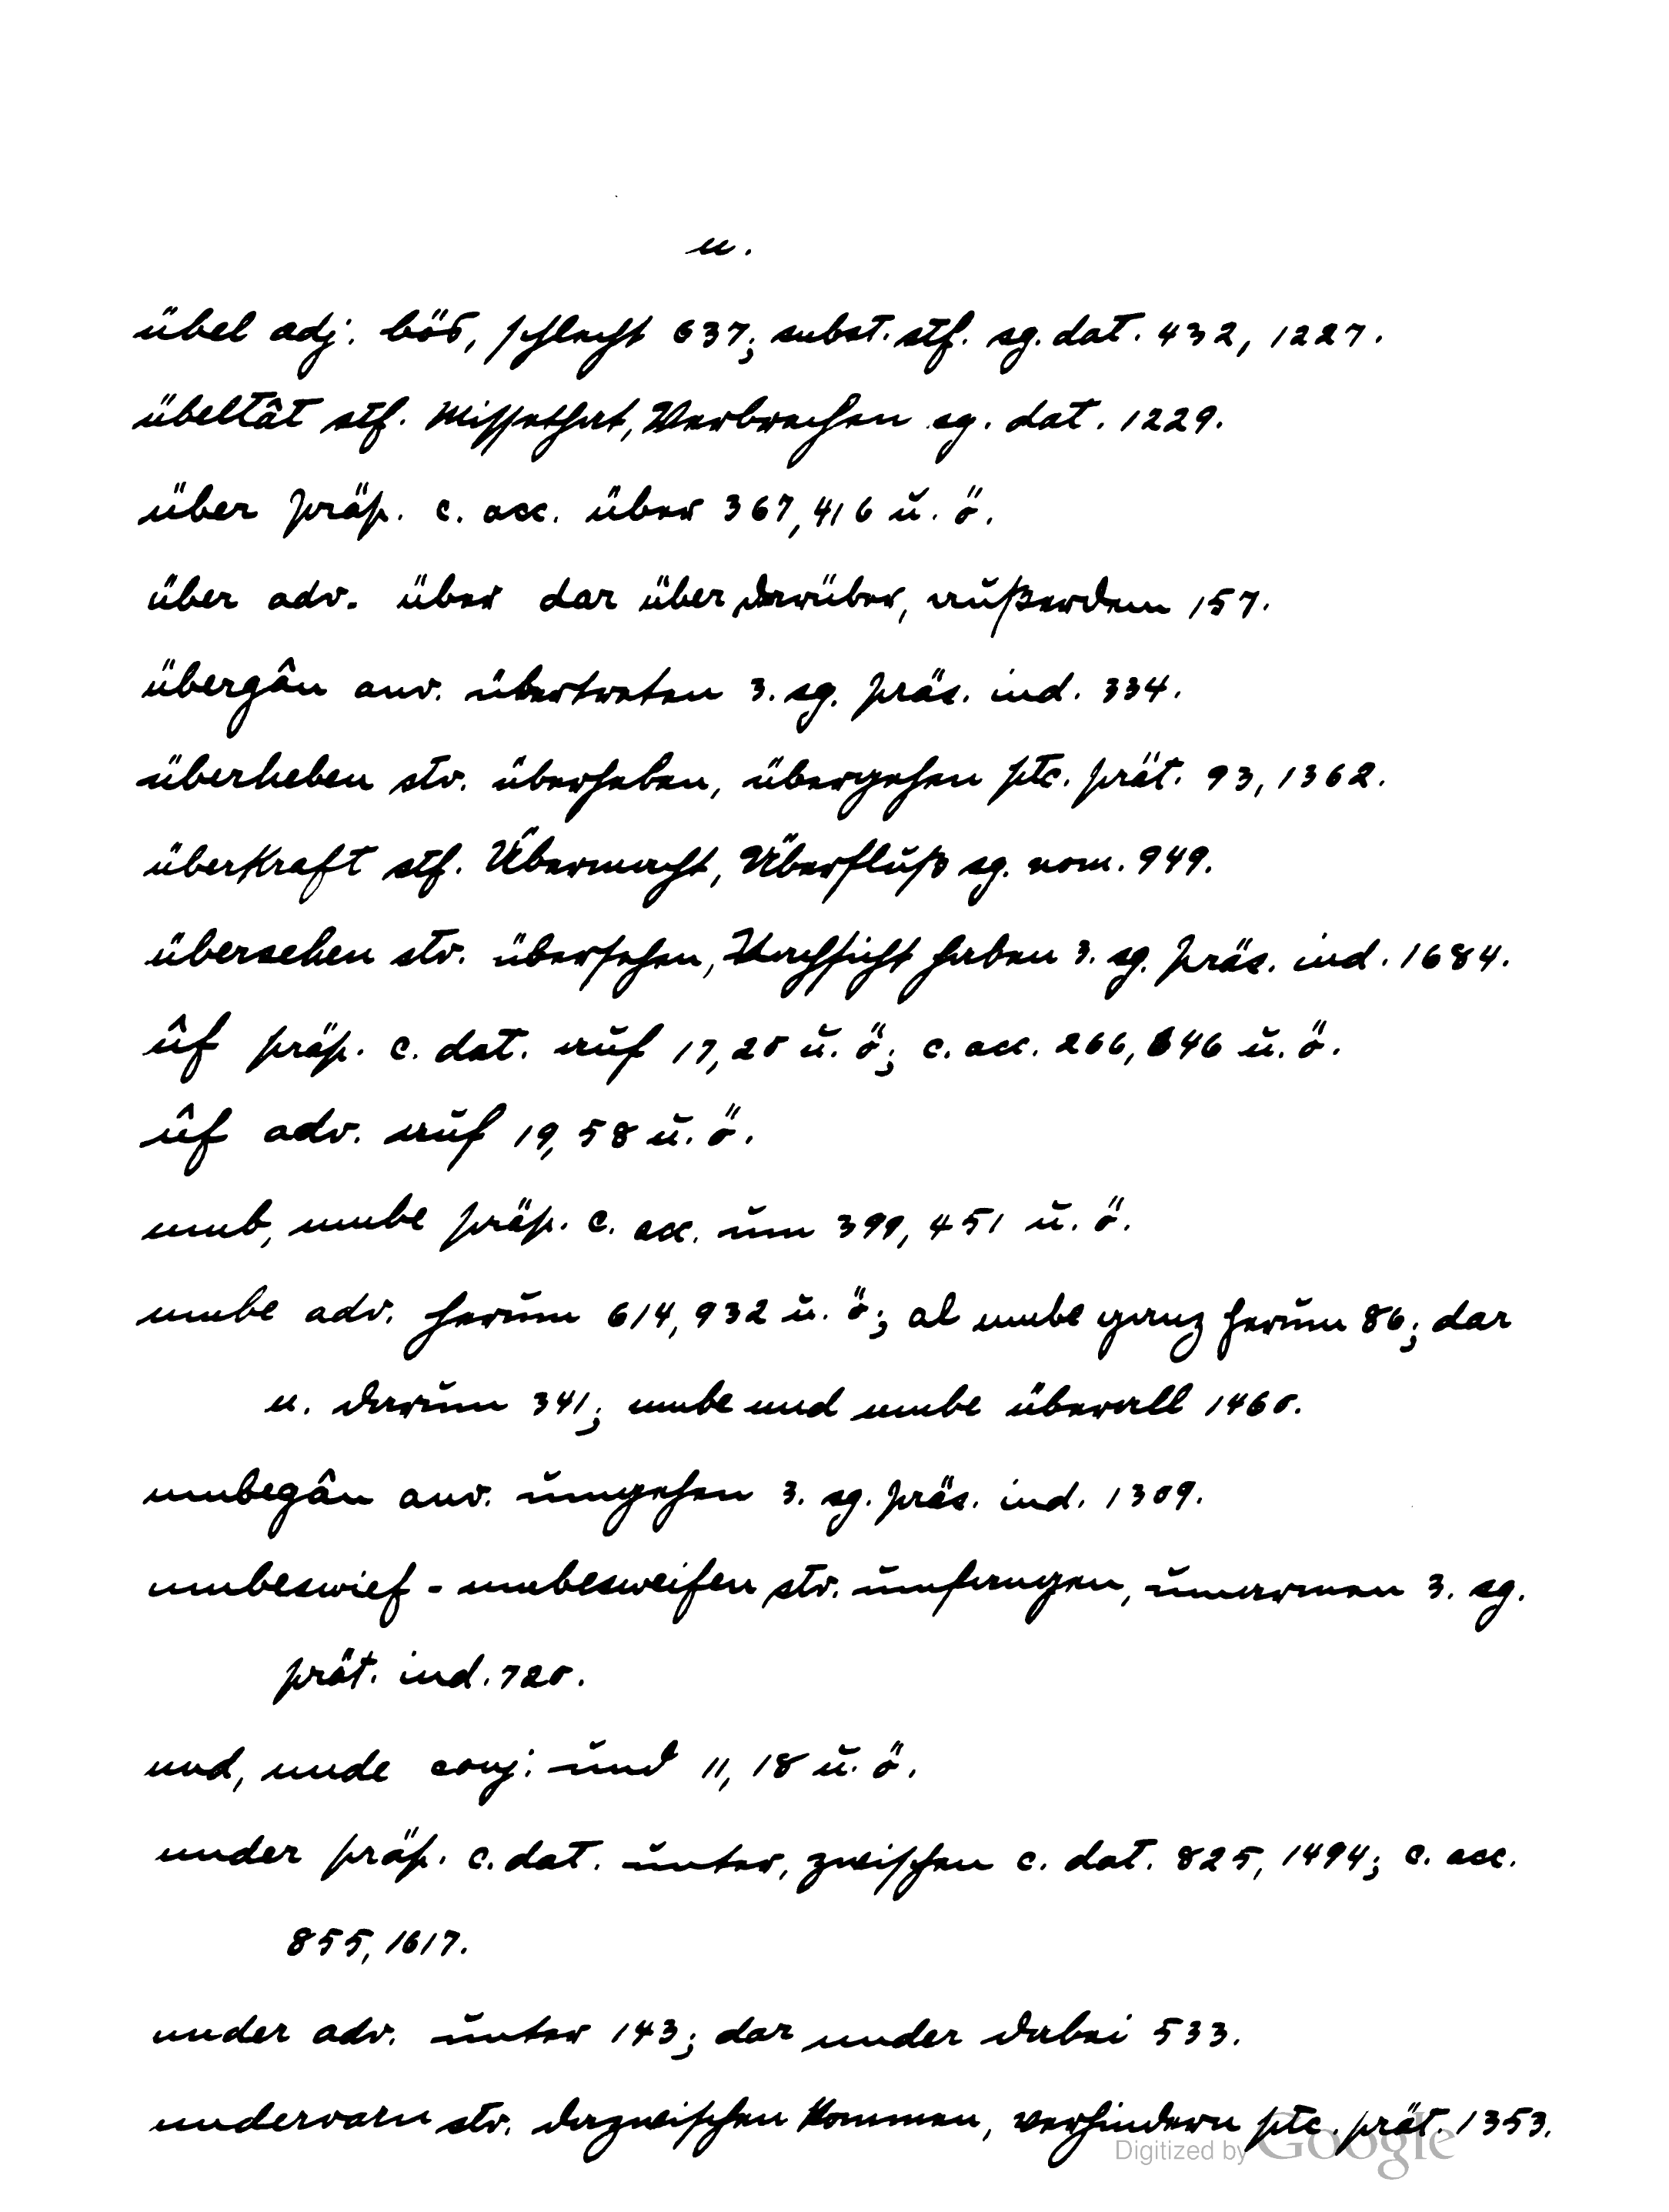 u.
übel adj. bös, schlecht 637; subst. stf. sg. dat. 432, 1227.
übeltât stf. Missethat, Verbrechen sg. dat. 1229.
über präp. c. acc. über 367, 416 u. ö.
über adv. über dar über darüber, außerdem 157.
übergân anv. übertreten 3. sg. präs. ind. 334.
überheben stv. überheben, übergehen ptc. prät. 93, 1362.
überkraft stf. Übermacht, Überfluß sg. nom. 949.
übersehen stv. übersehen, Nachsicht haben 3. sg. präs. ind. 1684.
ûf präp. c. dat. auf 17, 20 u. ö; c. acc. 266, 846 u. ö.
ûf adv. auf 19, 58 u. ö.
umb, umbe präp. c. acc. um 399, 451 u. ö.
umbe adv. herum 614, 932 u. ö; al umbe ganz herum 86; dar
u. darum 341; umbe und umbe überall 1460.
umbegân anv. umgehen 3. sg. präs. ind. 1309.
umbeswief - umbesweifen stv. umfangen, umarmen 3. sg.
prät. ind. 720.
und, unde conj. und 11, 18 u. ö.
under präp. c. dat. unter, zwischen c. dat. 825, 1494; c. acc.
855, 1617.
under adv. unter 143; dar under dabei 533.
undervarn stv. dazwischen kommen, verhindern ptc. prät. 1353.
Digitized by Google